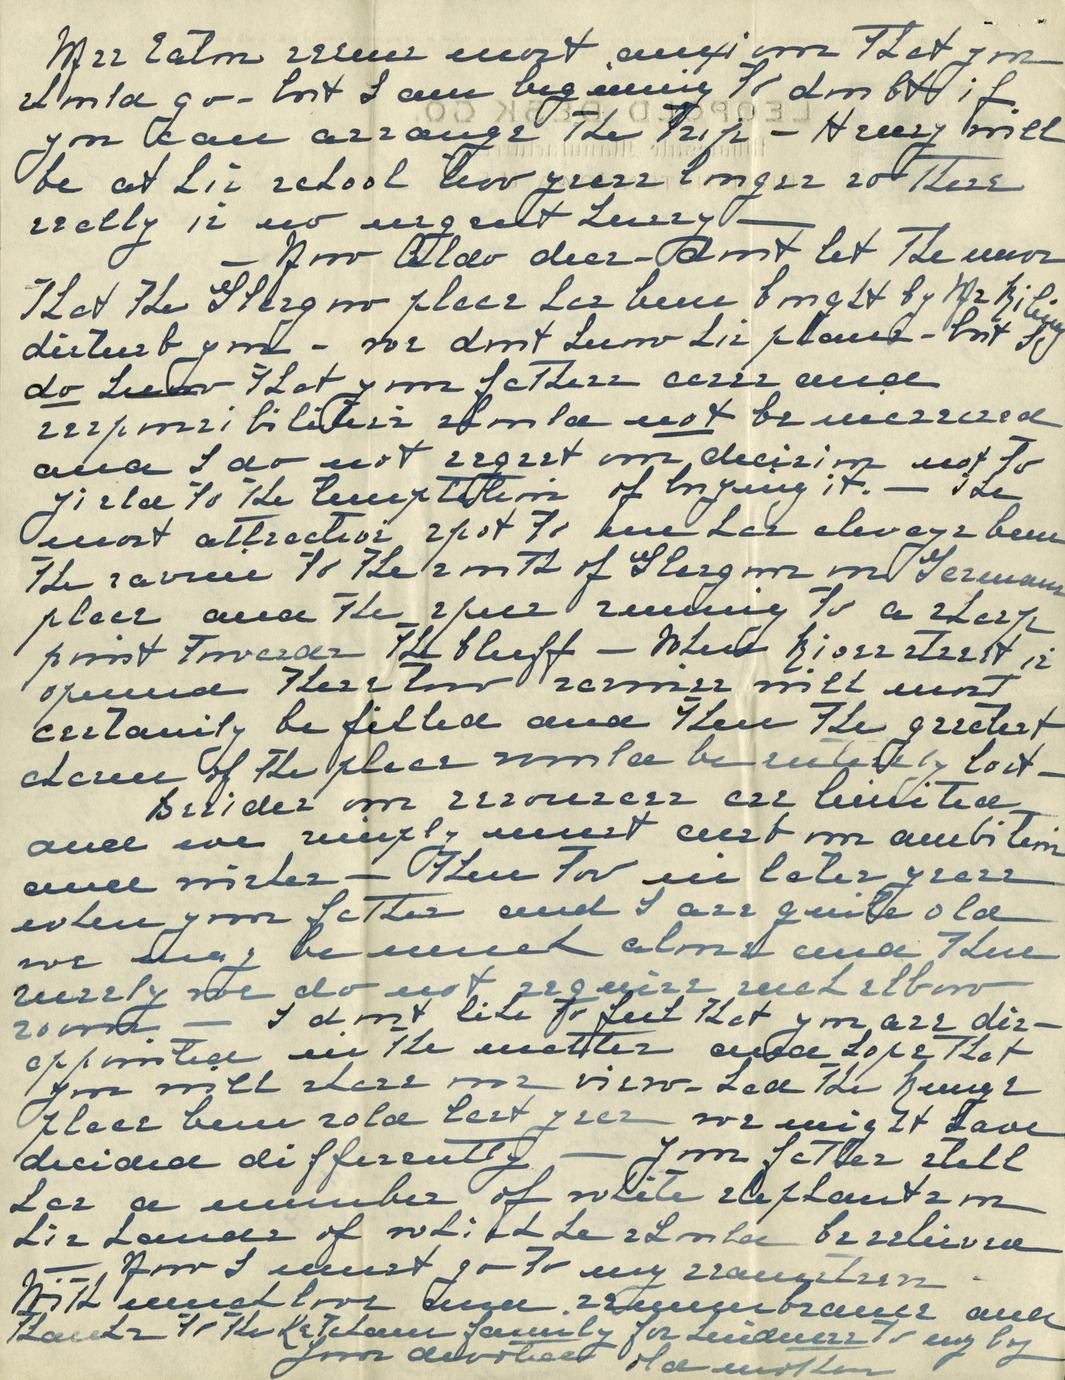 Mrs Eaton seems most anxious that you
should go - but I am beginning to doubt if
you can arrange the trip - Henry will
be at his school two years longer so there
really is no urgent hurry —
— Now Aldo dear - don't let the news
that the place has been bought by Mr
disturb you - we don't know his plans - but I
do know that your fathers cares and
responsibilities should not be increased
and I do not regret our decision not to
yield to the temptation of buying it. — The
most attractive spot to me has always been
the ravine to the south of on German
place and the spur running to a sharp
point towards the bluff — When street is
opened these two ravines will most
certainly be filled and then the greatest
charm of the place would be entirely lost —
Besides our resources are limited
and we simply must curb our ambition
and wishes — Then too in later years
when your father and I are quite old
we may be much alone and then
surely we do not require such elbow
room — I don't like to feel that you are dis-
appointed in the matter and hope that
you will share our view - Had the Runge
place been sold last year we might have
decided differently — Your father still
has a number of white elephants on
his hands of which he should be relieved
— Now I must go to my
With much love and remembrance and
thanks to the Ketcham family for kindness to my boy
Your devoted old mother
LEOPOLD DESK CO.